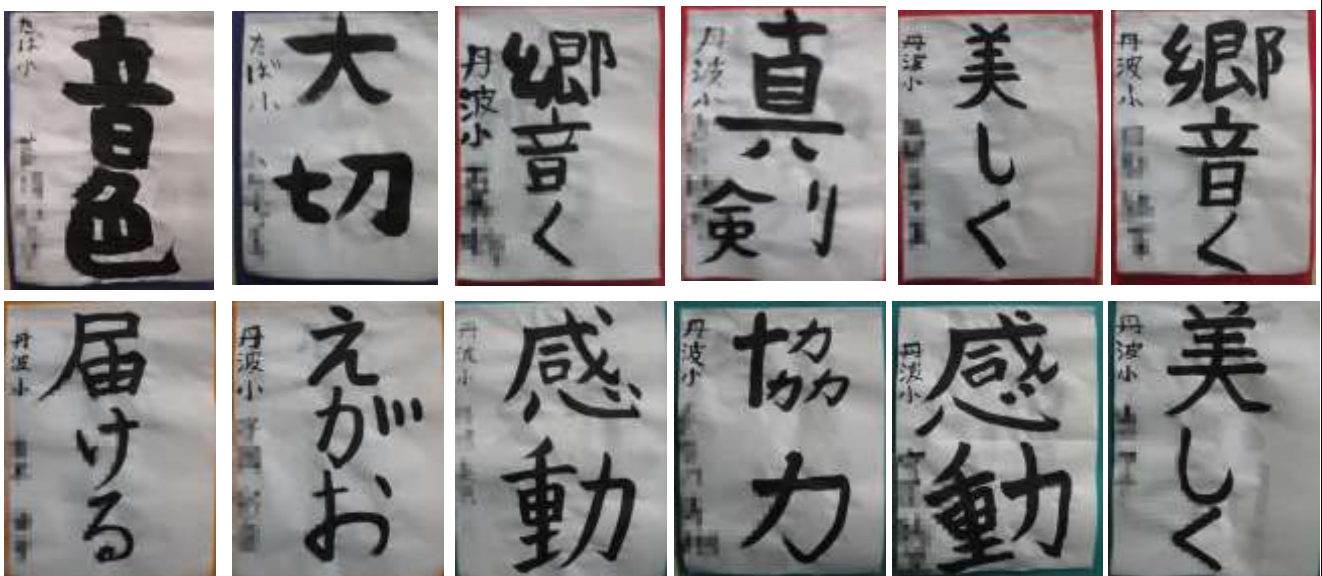 音色
たば小
大切
たば小
響く
丹波小
真剣
丹波小
美しく
丹波小
響く
丹波小
届ける
丹波小
えがお
丹波小
感動
丹波小
協力
丹波小
感動
丹波小
美しく
丹波小